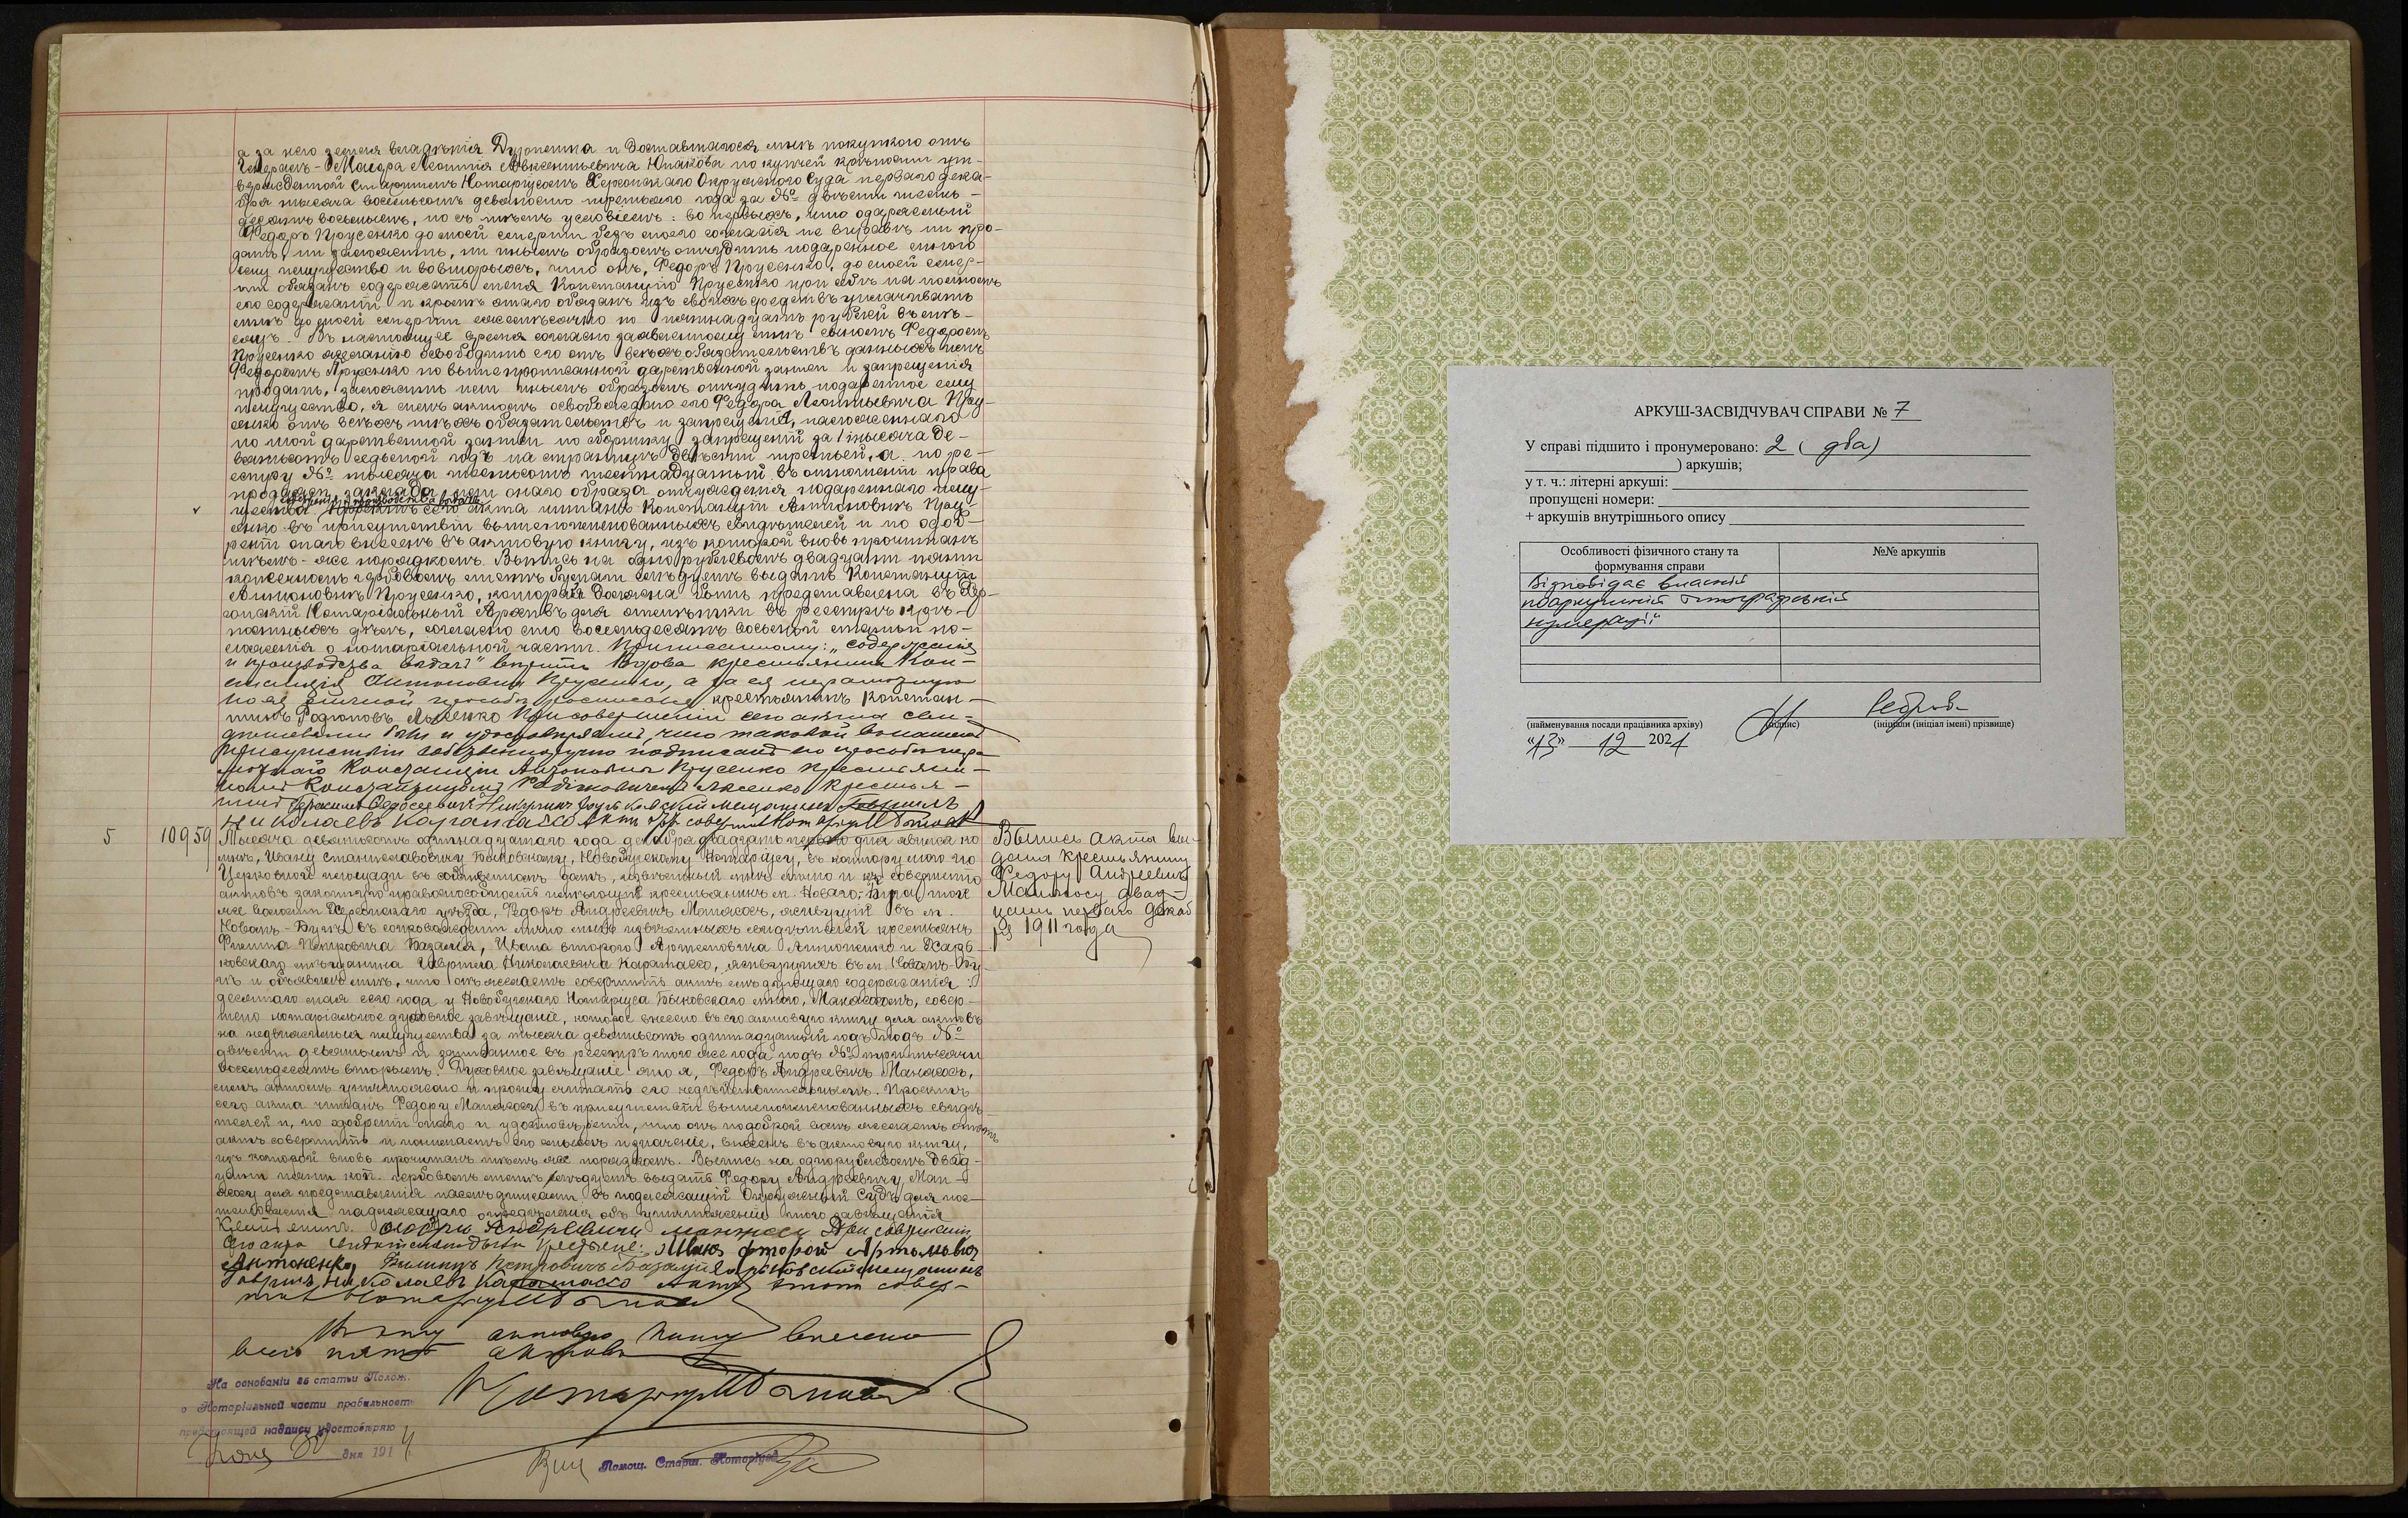 а за него зятемъ владѣнія Дуротника и доставшагося мнѣ покупкою отъ
Генералъ-Маіора Леонтія Авксентьевича Юнакова по купчей крѣпости ут-
вержденной Старшимъ Нотаріусомъ Херсонскаго Окружнаго Суда перваго дека-
бря тысяча восемьсотъ девяносто третьяго года за № двѣсти шесть-
десятъ восьмымъ, но съ тѣмъ условіемъ: во первыхъ, что одаряемый
Федоръ Прусенко до моей смерти безъ моего согласія не вправѣ ни про-
дать, ни заложить, ни инымъ образомъ отчудить подаренное мною
ему имущество и вовторыхъ, что онъ, Федоръ Прусенко, до моей смер-
ти обязанъ содержать меня Констанцію Прусенко при себѣ на полномъ
его содержаніи и кромѣ этого обязанъ изъ своихъ средствъ уплачивать
мнѣ до моей смерти ежемѣсячно по пятнадцать рублей въ мѣ-
сяцъ. Въ настоящее время согласно заявленному мнѣ сыномъ Федоромъ
Прусенко желанію освободить его отъ всѣхъ обязательствъ данныхъ имъ
Федоромъ Прусенко по вышепрописанной дарственной записи и запрещенія
продать, заложить или инымъ образомъ отчудить подаренное ему
имущество, я симъ актомъ освобождаю его Федора Леонтьевича Пру-
сенко отъ всѣхъ тѣхъ обязательствъ и запрещенія, наложеннаго
по той дарственной записи по сборнику запрещеній за тысяча де-
вятьсотъ седьмой годъ на страницѣ двѣсти третьей, а по ре-
естру № тысяча шестьсотъ шестнадцатый въ отношеніи права
продажи, заклада или онаго образа отчужденія подареннаго иму-
содержанія и производства выдачи
щества. Проектъ сего акта читанъ Констанціи Антоновнѣ Пру-
сенко въ присутствіи вышепоименованныхъ свидѣтелей и по одоб-
реніи онаго внесенъ въ актовую книгу, изъ которой вновь прочитанъ
тѣмъ-же порядкомъ. Выпись на однорублевомъ двадцати пяти
копеечномъ гербовомъ листѣ бумаги слѣдуетъ выдать Констанціи
Антоновнѣ Прусенко, которая должна быть представлена въ Хер-
сонскій Нотаріальный Архивъ для отмѣтки въ реестрѣ крѣ-
постныхъ дѣлъ, согласно сто восемьдесятъ восьмой статьи по-
ложенія о нотаріальной части. Приписанному: „содержанія
и производства выдачи" вѣрить. Вдова крестьянина Кон-
станція Антоновна Прусенко, а за ея неграмотную
по ея личной просьбѣ росписался крестьянинъ Констан-
тинъ Родіоновъ Аксенко При совершеніи сего акта сви-
дѣтелями были и удостовѣряемъ, что таковой въ нашемъ
присутствіи собственноручно подписанъ по просьбѣ негра-
мотной Констанціи Антоновны Прусенко крестьяни-
номъ Константиномъ Родіоновичемъ Аксенко Крестья-
нинъ Герасимъ Федосеевичъ Харьковскій мещанинъ Гаврiилъ
Николаевъ Каратассо Актъ этотъ совершилъ Нотаріусъ И Быковскій
5
10959
Тысяча девятьсотъ одиннадцатаго года декабря двадцать перваго дня явился ко
мнѣ, Ивану Станиславовичу Быковскому, Новобугскому Нотаріусу, въ контору мою по
Церковной площади въ собственномъ домѣ, извѣстный мнѣ лично и къ совершенію
актовъ законную правоспособность имѣющій крестьянинъ м. Новаго-Буга, той
же волости Херсонскаго уѣзда, Федоръ Андреевичъ Манжосъ, живущій въ м.
Новомъ-Бугѣ въ сопровожденіи лично мнѣ извѣстныхъ свидѣтелей крестьянъ
Филиппа Петровича Базалія, Ивана второго Артемовича Антоненко и Харь-
ковскаго мѣщанина Гавріила Николаевича Каратассо, живущихъ въ м. Новомъ-Бу-
гѣ и объявилъ мнѣ, что онъ желаетъ совершить актъ слѣдующаго содержанія:
десятаго мая сего года у Новобугскаго Нотаріуса Быковскаго мною, Манжосомъ, совер-
шено нотаріальное духовное завѣщаніе, которое внесено въ его актовую книгу для актовъ
на недвижимыя имущества за тысяча девятьсотъ одиннадцатый годъ подъ №
двѣсти девятымъ и записанное въ реестръ того же года подъ № три тысячи
восемьдесятъ вторымъ. Духовное завѣщаніе это я, Федоръ Андреевичъ Манжосъ,
симъ актомъ уничтожаю и прошу считать его недѣйствительнымъ. Проектъ
сего акта читанъ Федору Манжосу въ присутствіи вышепоименованныхъ свидѣ-
телей и, по одобреніи онаго и удостовѣреніи, что онъ по доброй волѣ желаетъ этотъ
актъ совершить и понимаетъ его смыслъ и значеніе, внесенъ въ актовую книгу,
изъ которой вновь прочитанъ тѣмъ же порядкомъ. Выпись на однорублевомъ двад-
цати пяти коп. гербовомъ листѣ слѣдуетъ выдать Федору Андреевичу Ман-
жосу для представленія въ подлежащій Окружный Судъ для пос-
тановленія надлежащаго опредѣленія объ уничтоженіи того завѣщанія
Крестьянинъ Федоръ Андреевичъ Манжосъ При совершеніи
сего акта свидѣтелями были Крестьяне: Иванъ второй Артемовъ
Антоненко, Филиппъ Петровичъ Базалій Харьковскій мещанинъ
Гавріилъ Николаевъ Каратассо Актъ этотъ совер-
шилъ Нотаріусъ И Быковскій
Выпись акта вы-
дана крестьянину
Федору Андреевичу
Манжосу двад-
цать перваго декаб
ря 1911 года
Въ эту актовую книгу внесено
всего пять актовъ
Нотаріусъ И Быковскій
На основаніи 26 статьи Полож.
о Нотаріальной части правильность
предстоящей надписи удостовѣряю
Июня 30 дня 1914
Помощ. Старш. Нотаріуса
АРКУШ-ЗАСВІДЧУВАЧ СПРАВИ № 7
У справі підшито і пронумеровано: 2 ( два)
) аркушів;
у т. ч.: літерні аркуші:
пропущені номери:
+ аркушів внутрішнього опису
Особливості фізичного стану та
формування справи
№№ аркушів
Відповідає власній
поаркушній типографській
нумерації
(найменування посади працівника архіву)
(підпис)
(ініціали (ініціал імені) прізвище)
«13» 12 2021